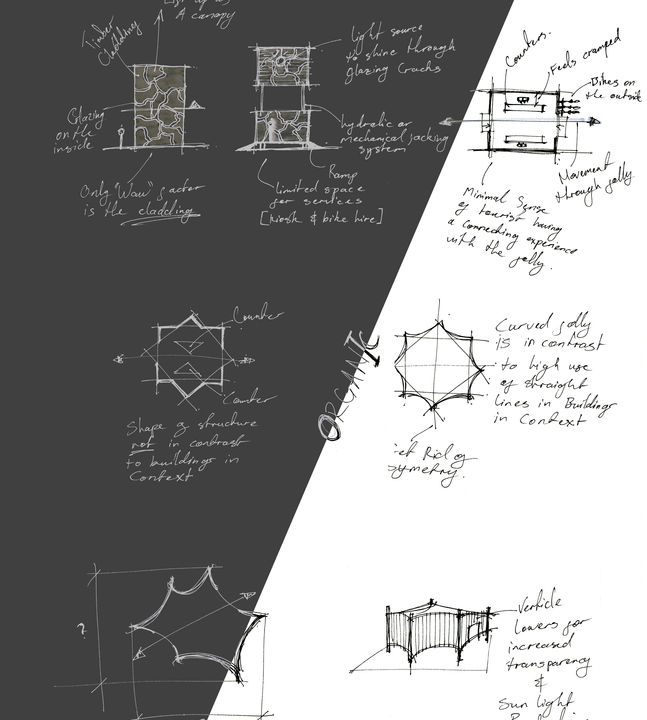 A canopy
Timber
Cladding
Glazing
on the
inside
Only "Wow" factor
is the cladding
light source
to shine through
glazing Cracks
hydralic or
mechanical jacking
system
Ramp
limited space
for services
[kiosk & bike hire]
Counters.
Feels cramped
Bikes on
the outside
Movement
through folly
Minimal Sense
of tourist having
a connecting experience
with the folly.
Counter
Counter
Shape of structure
not in contrast
to buildings in
Context
ORGANIC
Curved folly
is in contrast
to high use
of straight
lines in Buildings
in Context
Rid of
symmetry.
?
Verticle
lowers for
increased
transparency
&
Sun light